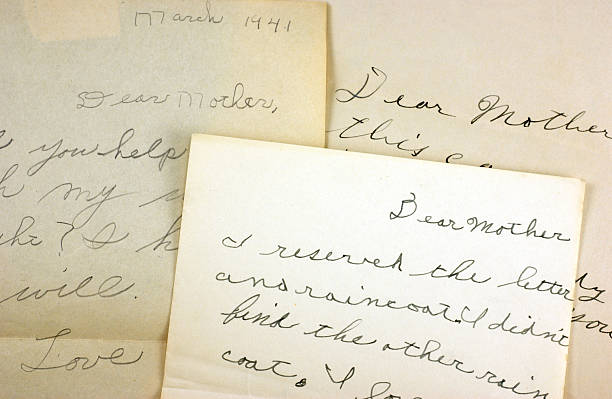 March 1941
Dear Mother,
you help
my
? I
will.
Love
Dear Mother
this
Dear Mother
I reserved the letter
and raincoat. I didn't
find the other rain
coat. I